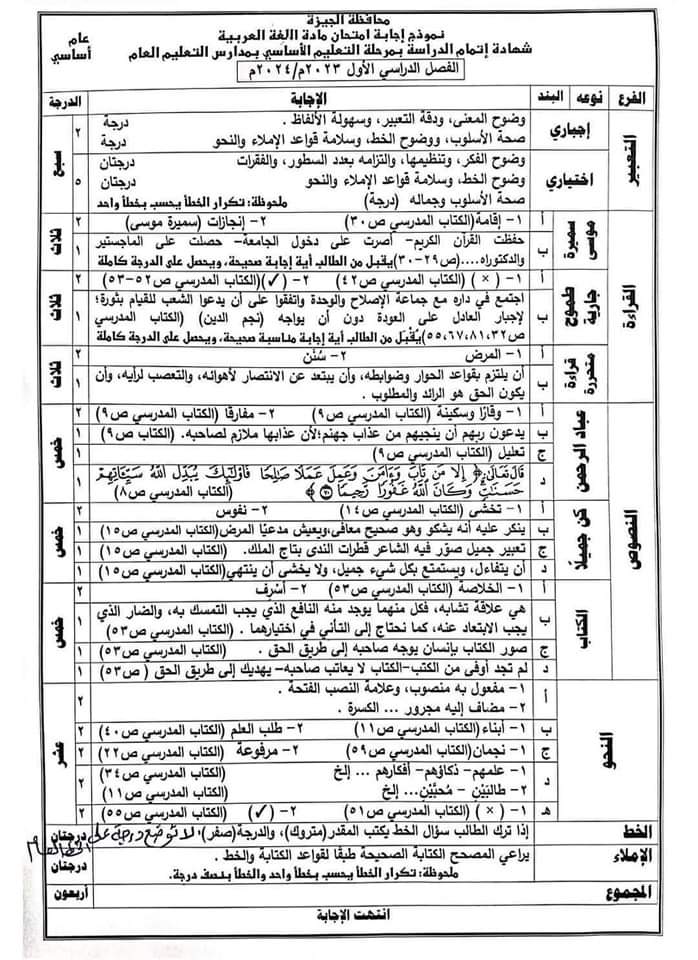 محافظة الجيزة
نموذج إجابة امتحان مادة اللغة العربية
شهادة إتمام الدراسة بمرحلة التعليم الأساسي بمدارس التعليم العام
عام
أساسي
الفصل الدراسي الأول ٢٠٢٣م/٢٠٢٤م
الفرع نوعه البند الإجابة الدرجة
التعبير
إجباري
وضوح المعنى، ودقة التعبير، وسهولة الألفاظ . درجة
صحة الأسلوب، ووضوح الخط، وسلامة قواعد الإملاء والنحو درجة
٢
سبع
اختياري
وضوح الفكر، وتنظيمها، والتزامه بعدد السطور، والفقرات درجتان
وضوح الخط، وسلامة قواعد الإملاء والنحو درجتان
صحة الأسلوب وجماله (درجة) ملحوظة: تكرار الخطأ يحسب بخطأ واحد
٥
القراءة
سميرة موسى
أ ١- إقامة(الكتاب المدرسي ص٣٠) ٢- إنجازات (سميرة موسى) ٢
ثلاث
ب حفظت القرآن الكريم- أصرت على دخول الجامعة- حصلت على الماجستير
والدكتوراه....(ص٢٩-٣٠)يقبل من الطالب أية إجابة صحيحة، ويحصل على الدرجة كاملة ١
طموح جارية
أ ١- (×) (الكتاب المدرسي ص٤٢) ٢- (✓)(الكتاب المدرسي ص٥٢-٥٣) ٢
ثلاث
ب اجتمع في داره مع جماعة الإصلاح والوحدة واتفقوا على أن يدعوا الشعب للقيام بثورة؛
لإجبار العادل على العودة دون أن يواجه (نجم الدين) (الكتاب المدرسي
ص٥٥،٦٧،٨١،٣٢)يُقْبَل من الطالب أية إجابة مناسبة صحيحة، ويحصل على الدرجة كاملة ١
قراءة متحررة
أ ١- المرض ٢- سُنَن ٢
ثلاث
ب أن يلتزم بقواعد الحوار وضوابطه، وأن يبتعد عن الانتصار لأهوائه، والتعصب لرأيه، وأن
يكون الحق هو الرائد والمطلوب . ١
النصوص
عباد الرحمن
أ ١- وقارًا وسكينة (الكتاب المدرسي ص٩) ٢- مفارقا (الكتاب المدرسي ص٩) ٢
خمس
ب يدعون ربهم أن ينجيهم من عذاب جهنم؛لأن عذابها ملازم لصاحبه. (الكتاب ص٩) ١
ج تعليل (الكتاب المدرسي ص٩) ١
د قَالَ تَعَالَىٰ: ﴿ إِلَّا مَن تَابَ وَءَامَنَ وَعَمِلَ عَمَلًا صَٰلِحًا فَأُوْلَٰٓئِكَ يُبَدِّلُ ٱللَّهُ سَيِّـَٔاتِهِمْ
حَسَنَٰتٍ وَكَانَ ٱللَّهُ غَفُورًا رَّحِيمًا ﴾ (الكتاب المدرسي ص٨) ١
كن جميلًا
أ ١- تخشى (الكتاب المدرسي ص١٤) ٢- نفوس ٢
خمس
ب ينكر عليه أنه يشكو وهو صحيح معافى،ويعيش مدعيًا المرض(الكتاب المدرسي ص١٥) ١
ج تعبير جميل صوّر فيه الشاعر قطرات الندى بتاج الملك. (الكتاب المدرسي ص١٥) ١
د أن يتفاءل، ويستمتع بكل شيء جميل، ولا يخشى أن ينتهي(الكتاب المدرسي ص١٥) ١
الكتاب
أ ١- الخلاصة (الكتاب المدرسي ص٥٣) ٢- أشرف ٢
خمس
ب هي علاقة تشابه، فكل منهما يوجد منه النافع الذي يجب التمسك به، والضار الذي
يجب الابتعاد عنه، كما نحتاج إلى التأني في اختيارهما . (الكتاب المدرسي ص٥٣) ١
ج صور الكتاب بإنسان يوجه صاحبه إلى طريق الحق . (الكتاب المدرسي ص٥٣) ١
د لم تجد أوفى من الكتب-الكتاب لا يعاتب صاحبه- يهديك إلى طريق الحق ( ص٥٣) ١
النحو
أ ١- مفعول به منصوب، وعلامة النصب الفتحة .
٢- مضاف إليه مجرور ... الكسرة . ٢
عشر
ب ١- أبناء(الكتاب المدرسي ص١١) ٢- طلب العلم (الكتاب المدرسي ص٤٠) ٢
ج ١- نجمان(الكتاب المدرسي ص٥٩) ٢- مرفوعة (الكتاب المدرسي ص٢٢) ٢
د ١- علمهم- ذكاؤهم- أفكارهم ... إلخ (الكتاب المدرسي ص٣٤)
٢- طالبَيْن - مُحبَّيْن... إلخ (الكتاب المدرسي ص١١) ٢
هـ ١- (×) (الكتاب المدرسي ص٥١) ٢- (✓) (الكتاب المدرسي ص٥٥) ٢
الخط إذا ترك الطالب سؤال الخط يكتب المقدر(متروك)، والدرجة(صفر). لا توضع درجة على درجتان
الإملاء يراعي المصحح الكتابة الصحيحة طبقًا لقواعد الكتابة والخط .
ملحوظة: تكرار الخطأ يحسب بخطأ واحد والخطأ بنصف درجة. درجتان
المجموع أربعون
انتهت الإجابة